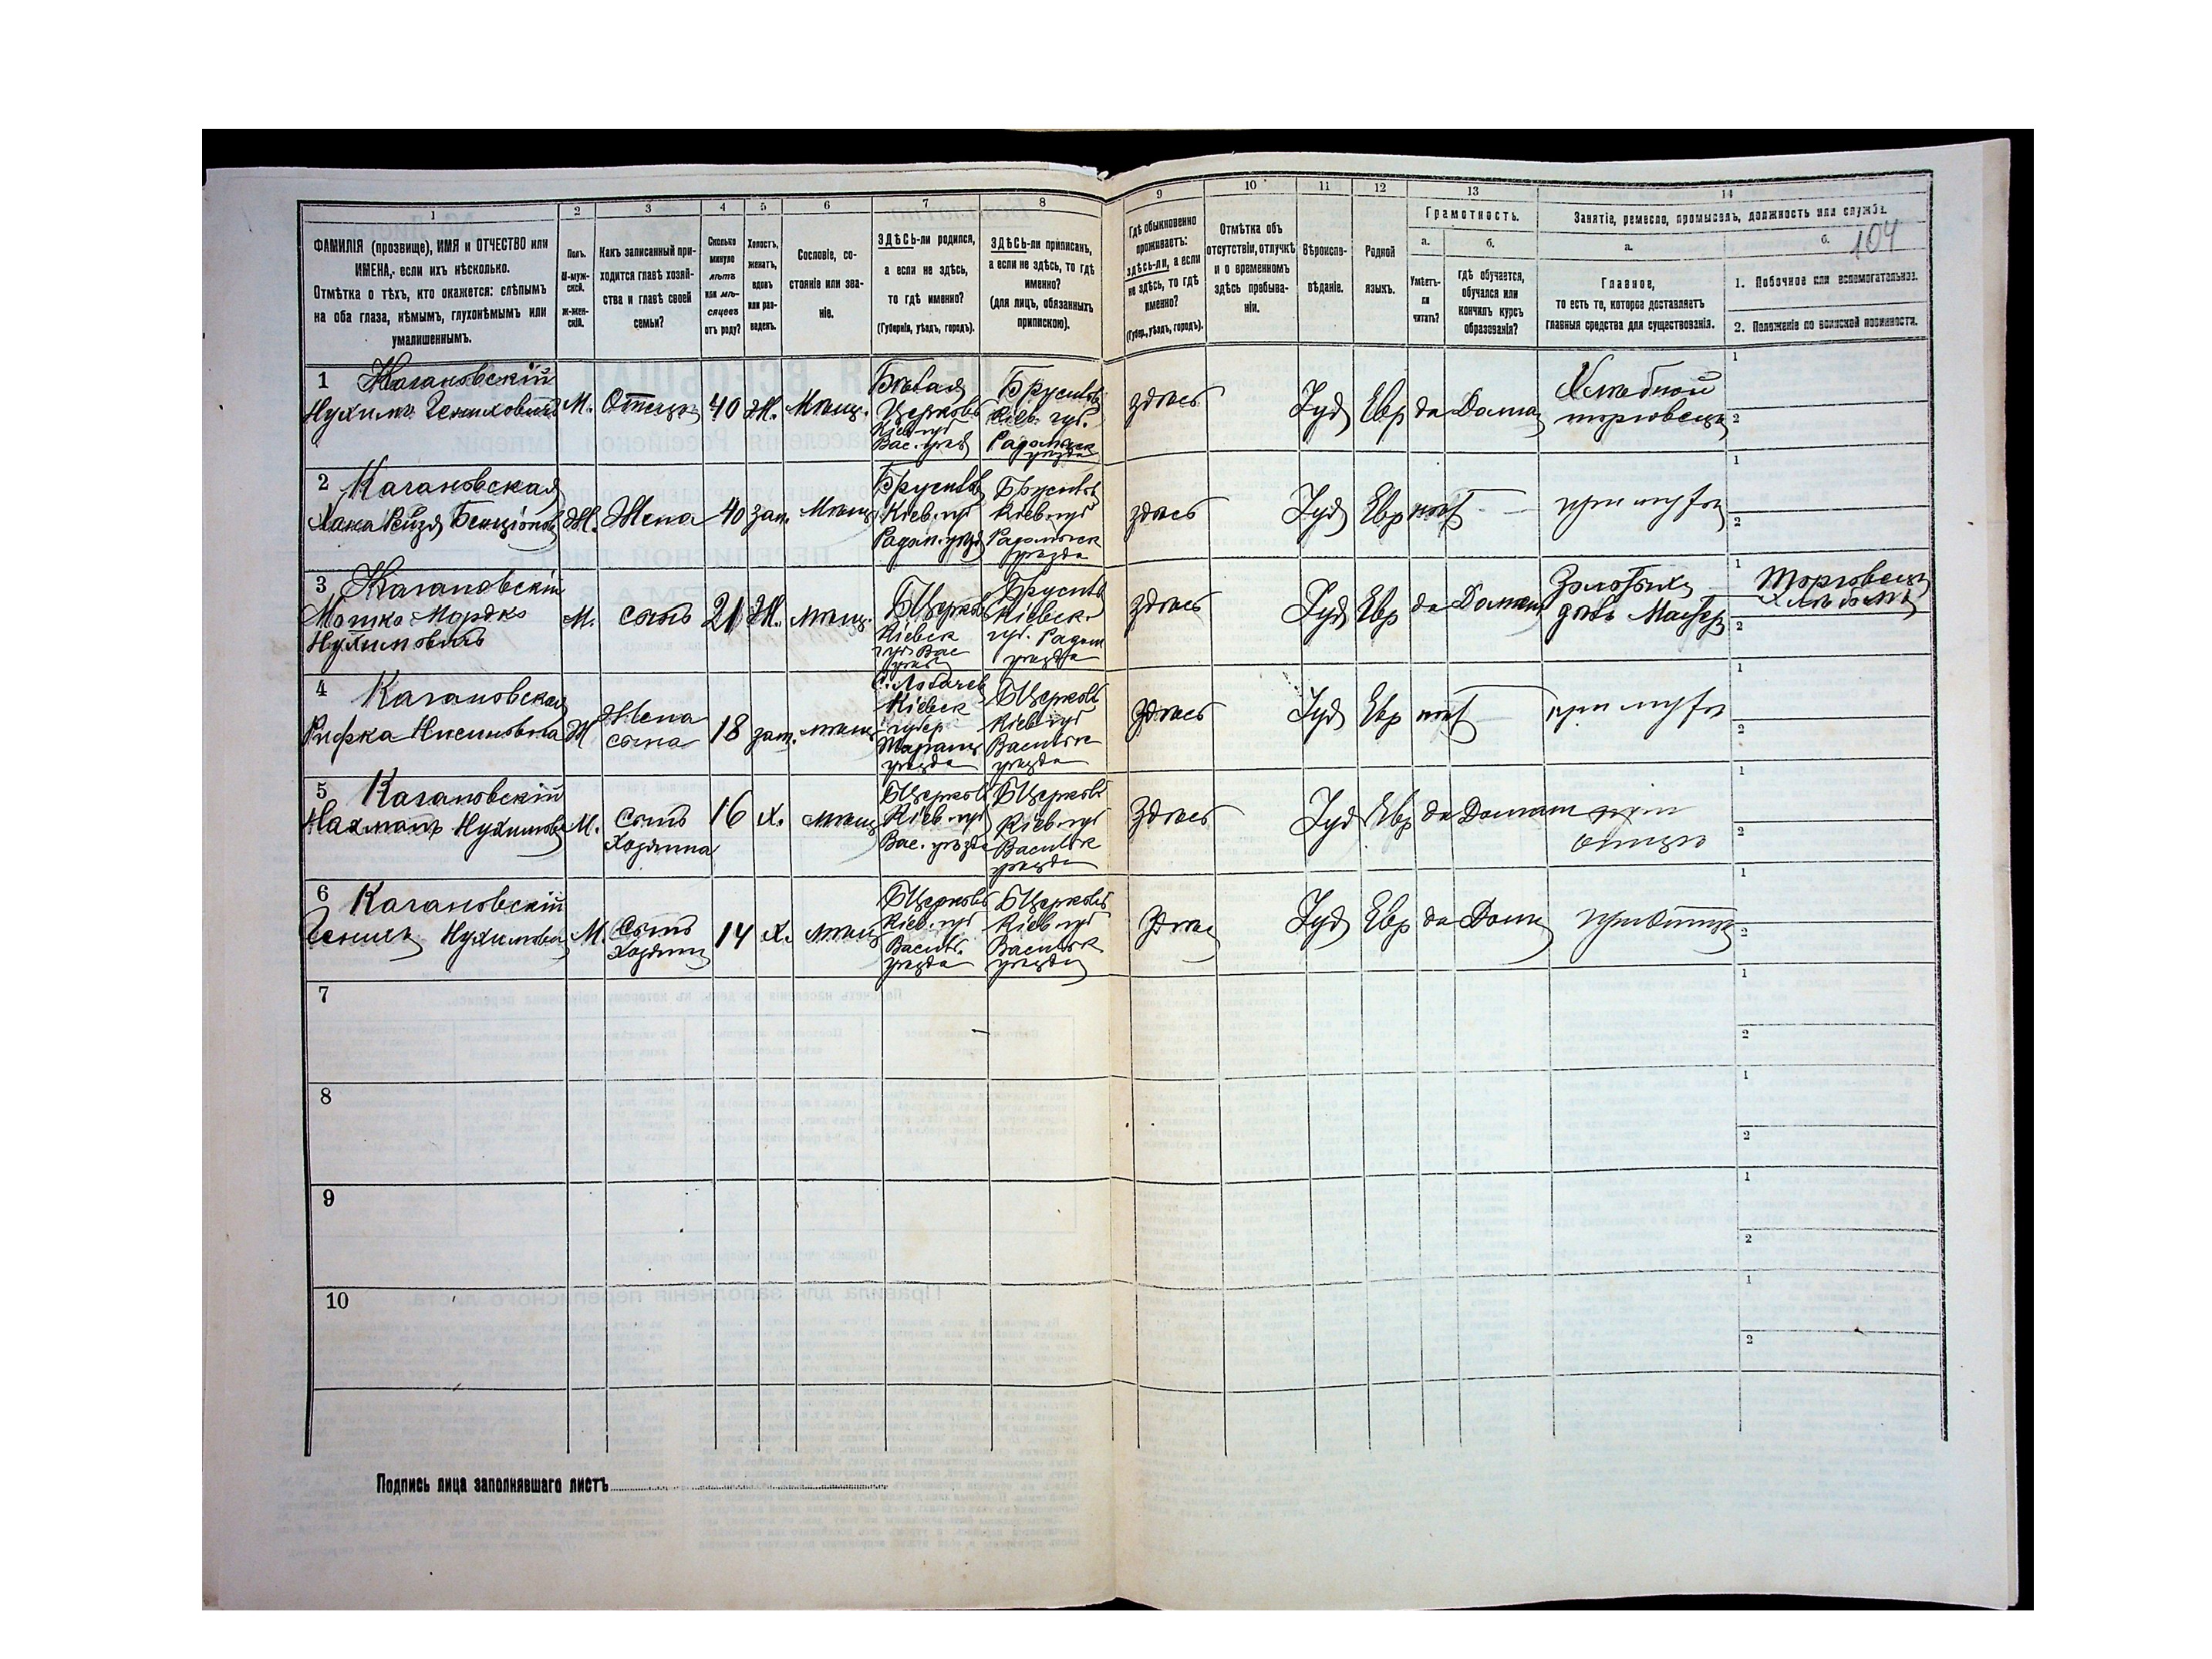 1 2 3 4 5 6 7 8 9 10 11 12 13 14
104
ФАМИЛІЯ (прозвище), ИМЯ и ОТЧЕСТВО или
ИМЕНА, если ихъ нѣсколько.
Отмѣтка о тѣхъ, кто окажется: слѣпымъ
на оба глаза, нѣмымъ, глухонѣмымъ или
умалишеннымъ.
Полъ.
М-муж-
ской.
Ж-жен-
скій.
Какъ записанный при-
ходится главѣ хозяй-
ства и главѣ своей
семьи?
Сколько
минуло
лѣтъ
или мѣ-
сяцевъ
отъ роду?
Холостъ,
женатъ,
вдовъ
или раз-
веденъ.
Сословіе, со-
стояніе или зва-
ніе.
ЗДѢСЬ-ли родился,
а если не здѣсь,
то гдѣ именно?
(Губернія, уѣздъ, городъ).
ЗДѢСЬ-ли приписанъ,
а если не здѣсь, то гдѣ
именно?
(для лицъ, обязанныхъ
припискою).
Гдѣ обыкновенно
проживаетъ:
здѣсь-ли, а если
не здѣсь, то гдѣ
именно?
(Губер., уѣздъ, городъ).
Отмѣтка объ
отсутствіи, отлучкѣ
и о временномъ
здѣсь пребыва-
ніи.
Вѣроиспо-
вѣданіе.
Родной
языкъ.
Грамотность.
а.
Умѣетъ-
ли
читать?
б.
гдѣ обучается,
обучался или
кончилъ курсъ
образованія?
Занятіе, ремесло, промыселъ, должность или служба.
а.
Главное,
то есть то, которое доставляетъ
главныя средства для существованія.
б.
1. Побочное или вспомогательное.
2. Положеніе по воинской повинности.
1 Кагановскій
Нухимъ Гениховичъ
М.
Отецъ
40
Ж.
Мѣщ.
Бѣлая
Церковь
Кіев. губ
Вас. уѣзд
Брусиловъ
Кіев. губ.
Радомыск
уѣзда
здѣсь
Іуд
Евр
да
Дома
Хлѣбной
торговецъ
1
2
2 Кагановская
Хана Рейзя Бенціонов
Ж.
Жена
40
зам.
Мѣщ
Брусилов
Кіев. губ
Радом. уѣзд
Брусилов
Кіев. губ
Радомыск
уѣзда
здѣсь
Іуд
Евр
нѣт
при мужѣ
1
2
3 Кагановскій
Мошко Мордко
Нухимовичъ
М.
сынъ
21
Ж.
мѣщ.
БЦерковь
Кіевск
губ Вас
уѣзд
Брусилов
Кіевск.
губ. Радом
уѣзда
здѣсь
Іуд
Евр
да
Домаш
Золотыхъ
дѣлъ Мастер
1 Торговецъ
Хлѣбомъ
2
4 Кагановская
Рифка Нисиновна
Ж
Жена
сына
18
зам.
мѣщ
С. Лобачев
Кіевск
губер
Таращ
уѣзда
БЦерковь
Кіев губ
Васильк
уѣзда
здѣсь
Іуд
Евр
нѣт
при мужѣ
1
2
5 Кагановскій
Нахманъ Нухимов
М.
Сынъ
Хозяина
16
х.
мѣщ
БЦерковь
Кіев. губ
Вас. уѣзда
БЦерковь
Кіев губ
Васильк
уѣзда
здѣсь
Іуд
Евр
да
Домаш
при
отцѣ
1
2
6 Кагановскій
Генихъ Нухимовъ
М.
Сынъ
Хозяина
14
х.
мѣщ
БЦерковь
Кіев. губ
Васильк.
уѣзда
БЦерковь
Кіев губ
Васильк
уѣзда
здѣсь
Іуд
Евр
да
Дома
при отцѣ
1
2
7
1
2
8
1
2
9
1
2
10
1
2
Подпись лица заполнявшаго листъ